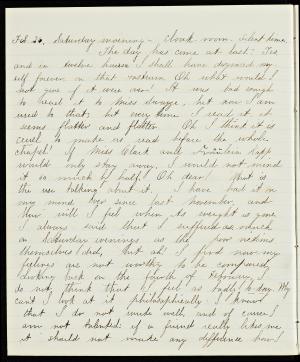 Feb. 20. Saturday morning - Cloak room. Silent time.
The day has come at last! Yes
and in twelve hours I shall have disgraced my
self forever on that rostrum Oh what would I
not give if it were over! It was bad enough
to read it to Miss Savage, but now I am
used to that; but every time I read it it
seems flatter and flatter. Oh I think it is
cruel to make us read before the whole
chapel! If Miss Clark and Knapp
would only stay away I would not mind
it so much by half! Oh dear! What is
the use talking about it. I have had it on
my mind ever since last November, and
How will I feel when its weight is gone
I always said that I suffered as much
on Saturday evenings as the poor victims
themselves did, but ah! I find now my
feelings are not worthy to be compared
Looking back on the fourth of February I
do not think that I feel as badly to day. Why
can't I look at it philosophically. I know
that I do not write well and of course I
am not talented; if a friend really likes me
it should not make any difference how I